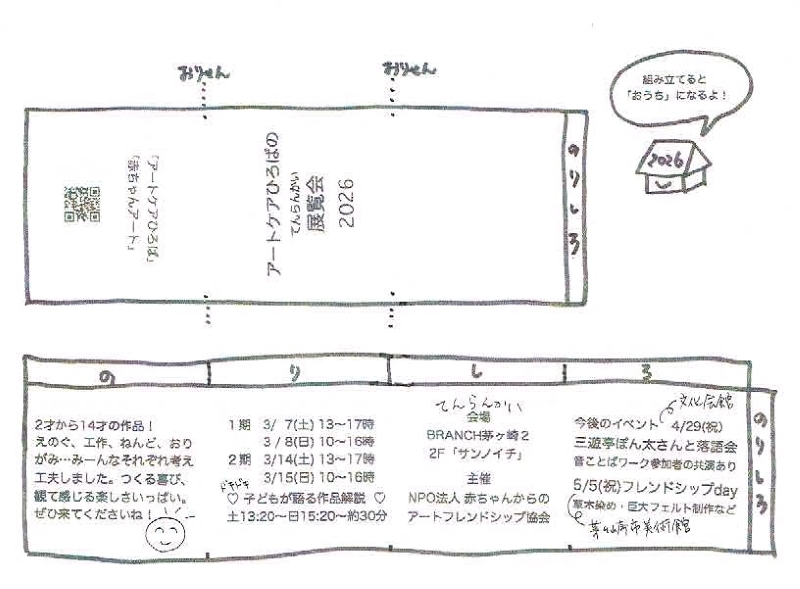 おりせん
おりせん
組み立てると
「おうち」になるよ！
2026
「アートケアひろば」
「赤ちゃんアート」
アートケアひろばの
てんらんかい
展覧会
2026
のりしろ
のりしろ
2才から14才の作品！
えのぐ、工作、ねんど、おり
がみ…みーんなそれぞれ考え
工夫しました。つくる喜び、
観て感じる楽しさいっぱい。
ぜひ来てくださいね！
1期 3/ 7(土) 13〜17時
3/ 8(日) 10〜16時
2期 3/14(土) 13〜17時
3/15(日) 10〜16時
ドキドキ
♡ 子どもが語る作品解説 ♡
土13:20〜日15:20〜約30分
てんらんかい
会場
BRANCH茅ヶ崎２
2F「サンノイチ」
主催
NPO法人 赤ちゃんからの
アートフレンドシップ協会
文化会館
今後のイベント 4/29(祝)
三遊亭ぽん太さんと落語会
音ことばワーク参加者の共演あり
5/5(祝)フレンドシップday
草木染め・巨大フェルト制作など
茅ヶ崎市美術館
のりしろ